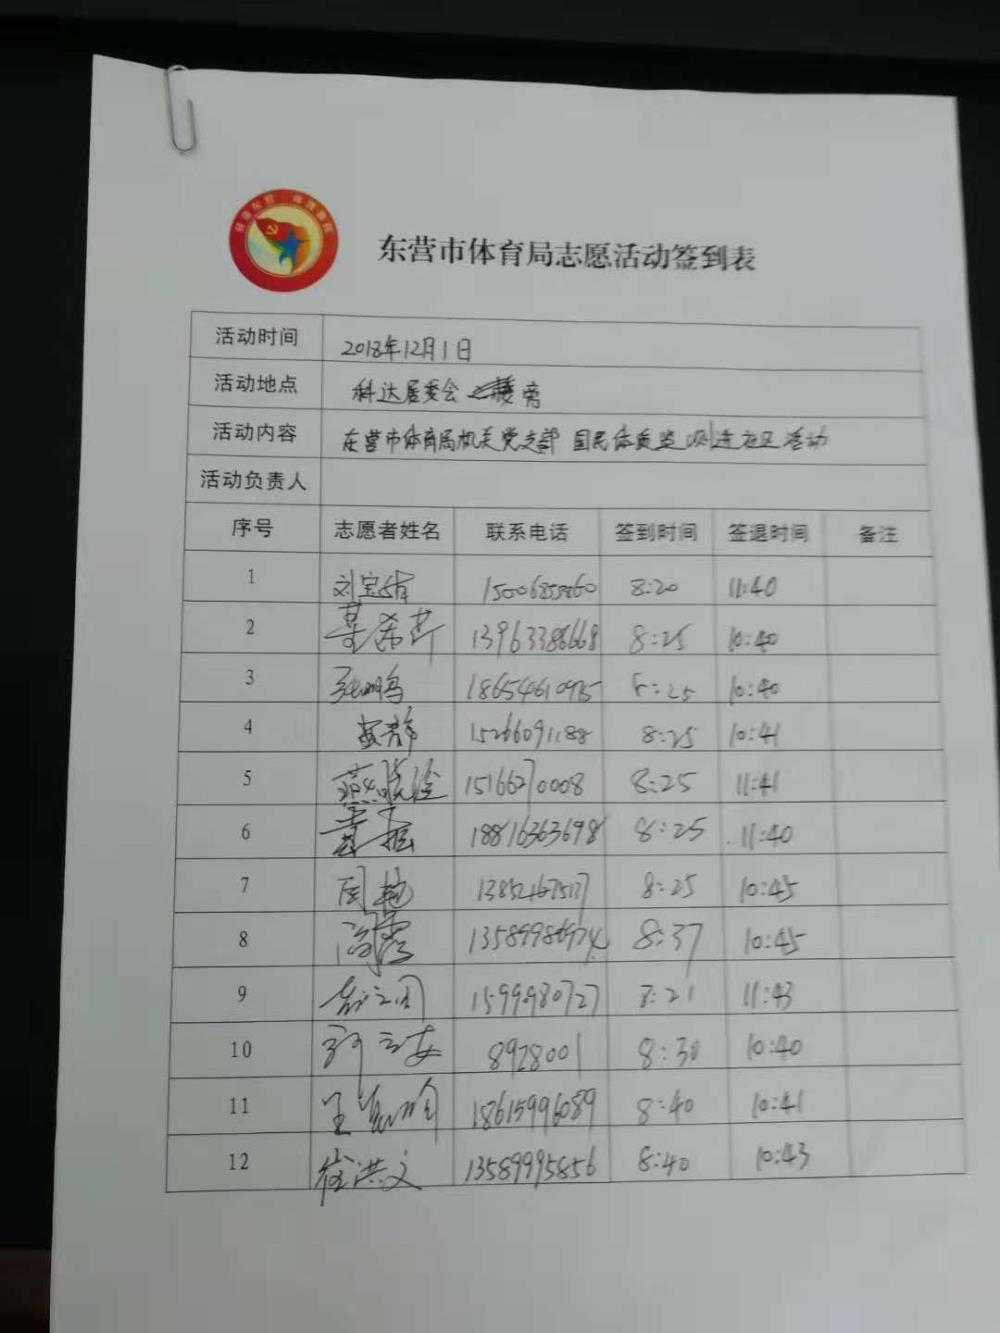 东营市体育局志愿活动签到表
活动时间 2018年12月1日
活动地点 科达居委会 旁
活动内容 在营市体育局机关党支部 国民体质监测进社区活动
活动负责人
序号 志愿者姓名 联系电话 签到时间 签退时间 备注
1 刘宝 8:20 11:40
2 13963386668 8:25 10:40
3 8:25 10:40
4 15266091188 8:25 10:41
5 燕晓 15166270008 8:25 11:41
6 18816363698 8:25 11:40
7 周艳 8:25 10:45
8 8:37 10:45
9 15999980727 8:21 11:43
10 8928001 8:30 10:40
11 王 18615996089 8:40 10:41
12 徐洪文 13589995856 8:40 10:43